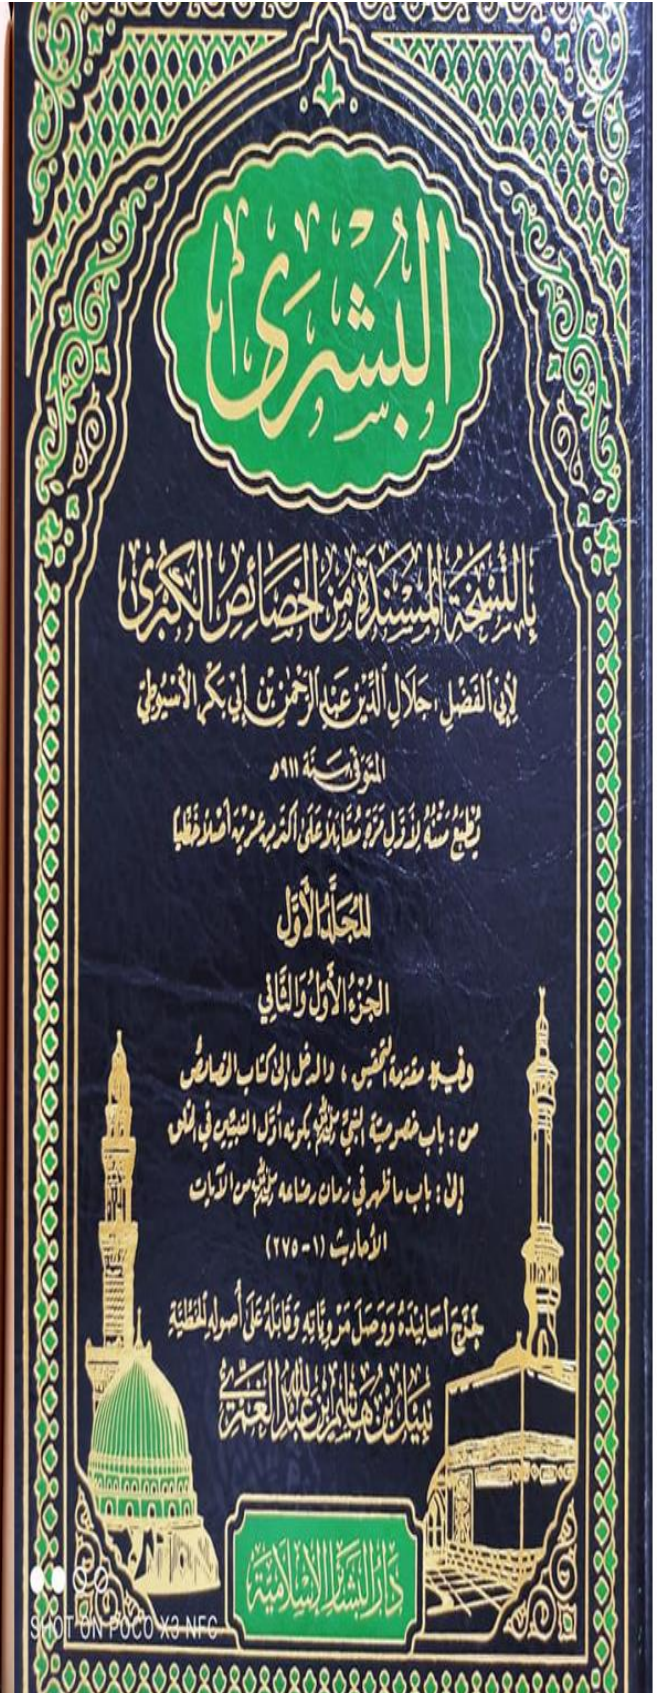 البُشْرَى
بِالنُّسْخَةِ المُسْنَدَةِ مِنَ الخَصَائِصِ الكُبْرَى
لِأَبِي الفَضْلِ، جَلَالِ الدِّيْنِ عَبْدِ الرَّحْمٰنِ بْنِ أَبِي بَكْرٍ الأَسْيُوطِيِّ
المتَوَفَّى سَنَة ٩١١هـ
يُطْبَعُ مَتْنُهُ لِأَوَّلِ مَرَّةٍ مُقَابَلًا عَلَى أَكْثَرَ مِنْ عِشْرِيْنَ أَصْلًا خَطِّيًّا
المُجَلَّدُ الأَوَّل
الجُزْءُ الأَوَّلُ وَالثَّانِي
وفيه مقدمة التحقيق، والمدخل إلى كتاب الخصائص
من: باب خصوصية النبيّ ﷺ بكونه أوّل النبيّين في الخلق
إلى: باب ما ظهر في زمان رضاعه ﷺ من الآيات
الأحاديث (١-٢٧٥)
خَرَّجَ أَسَانِيْدَهُ وَوَصَلَ مَرْوِيَّاتِهِ وَقَابَلَهُ عَلَى أُصولِهِ الخَطِّيَّةِ
نَبِيْل بْن هَاشِم بْن عَبْدِ اللّٰهِ الغَمْرِيّ
دَارُ البَشَائِرِ الإِسْلَامِيَّة
SHOT ON POCO X3 NFC